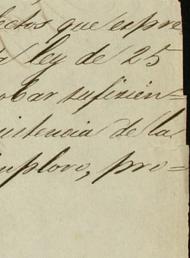 ectos que espre
a ley de 25
obar suficien=
istencia de la
mploro, pro=